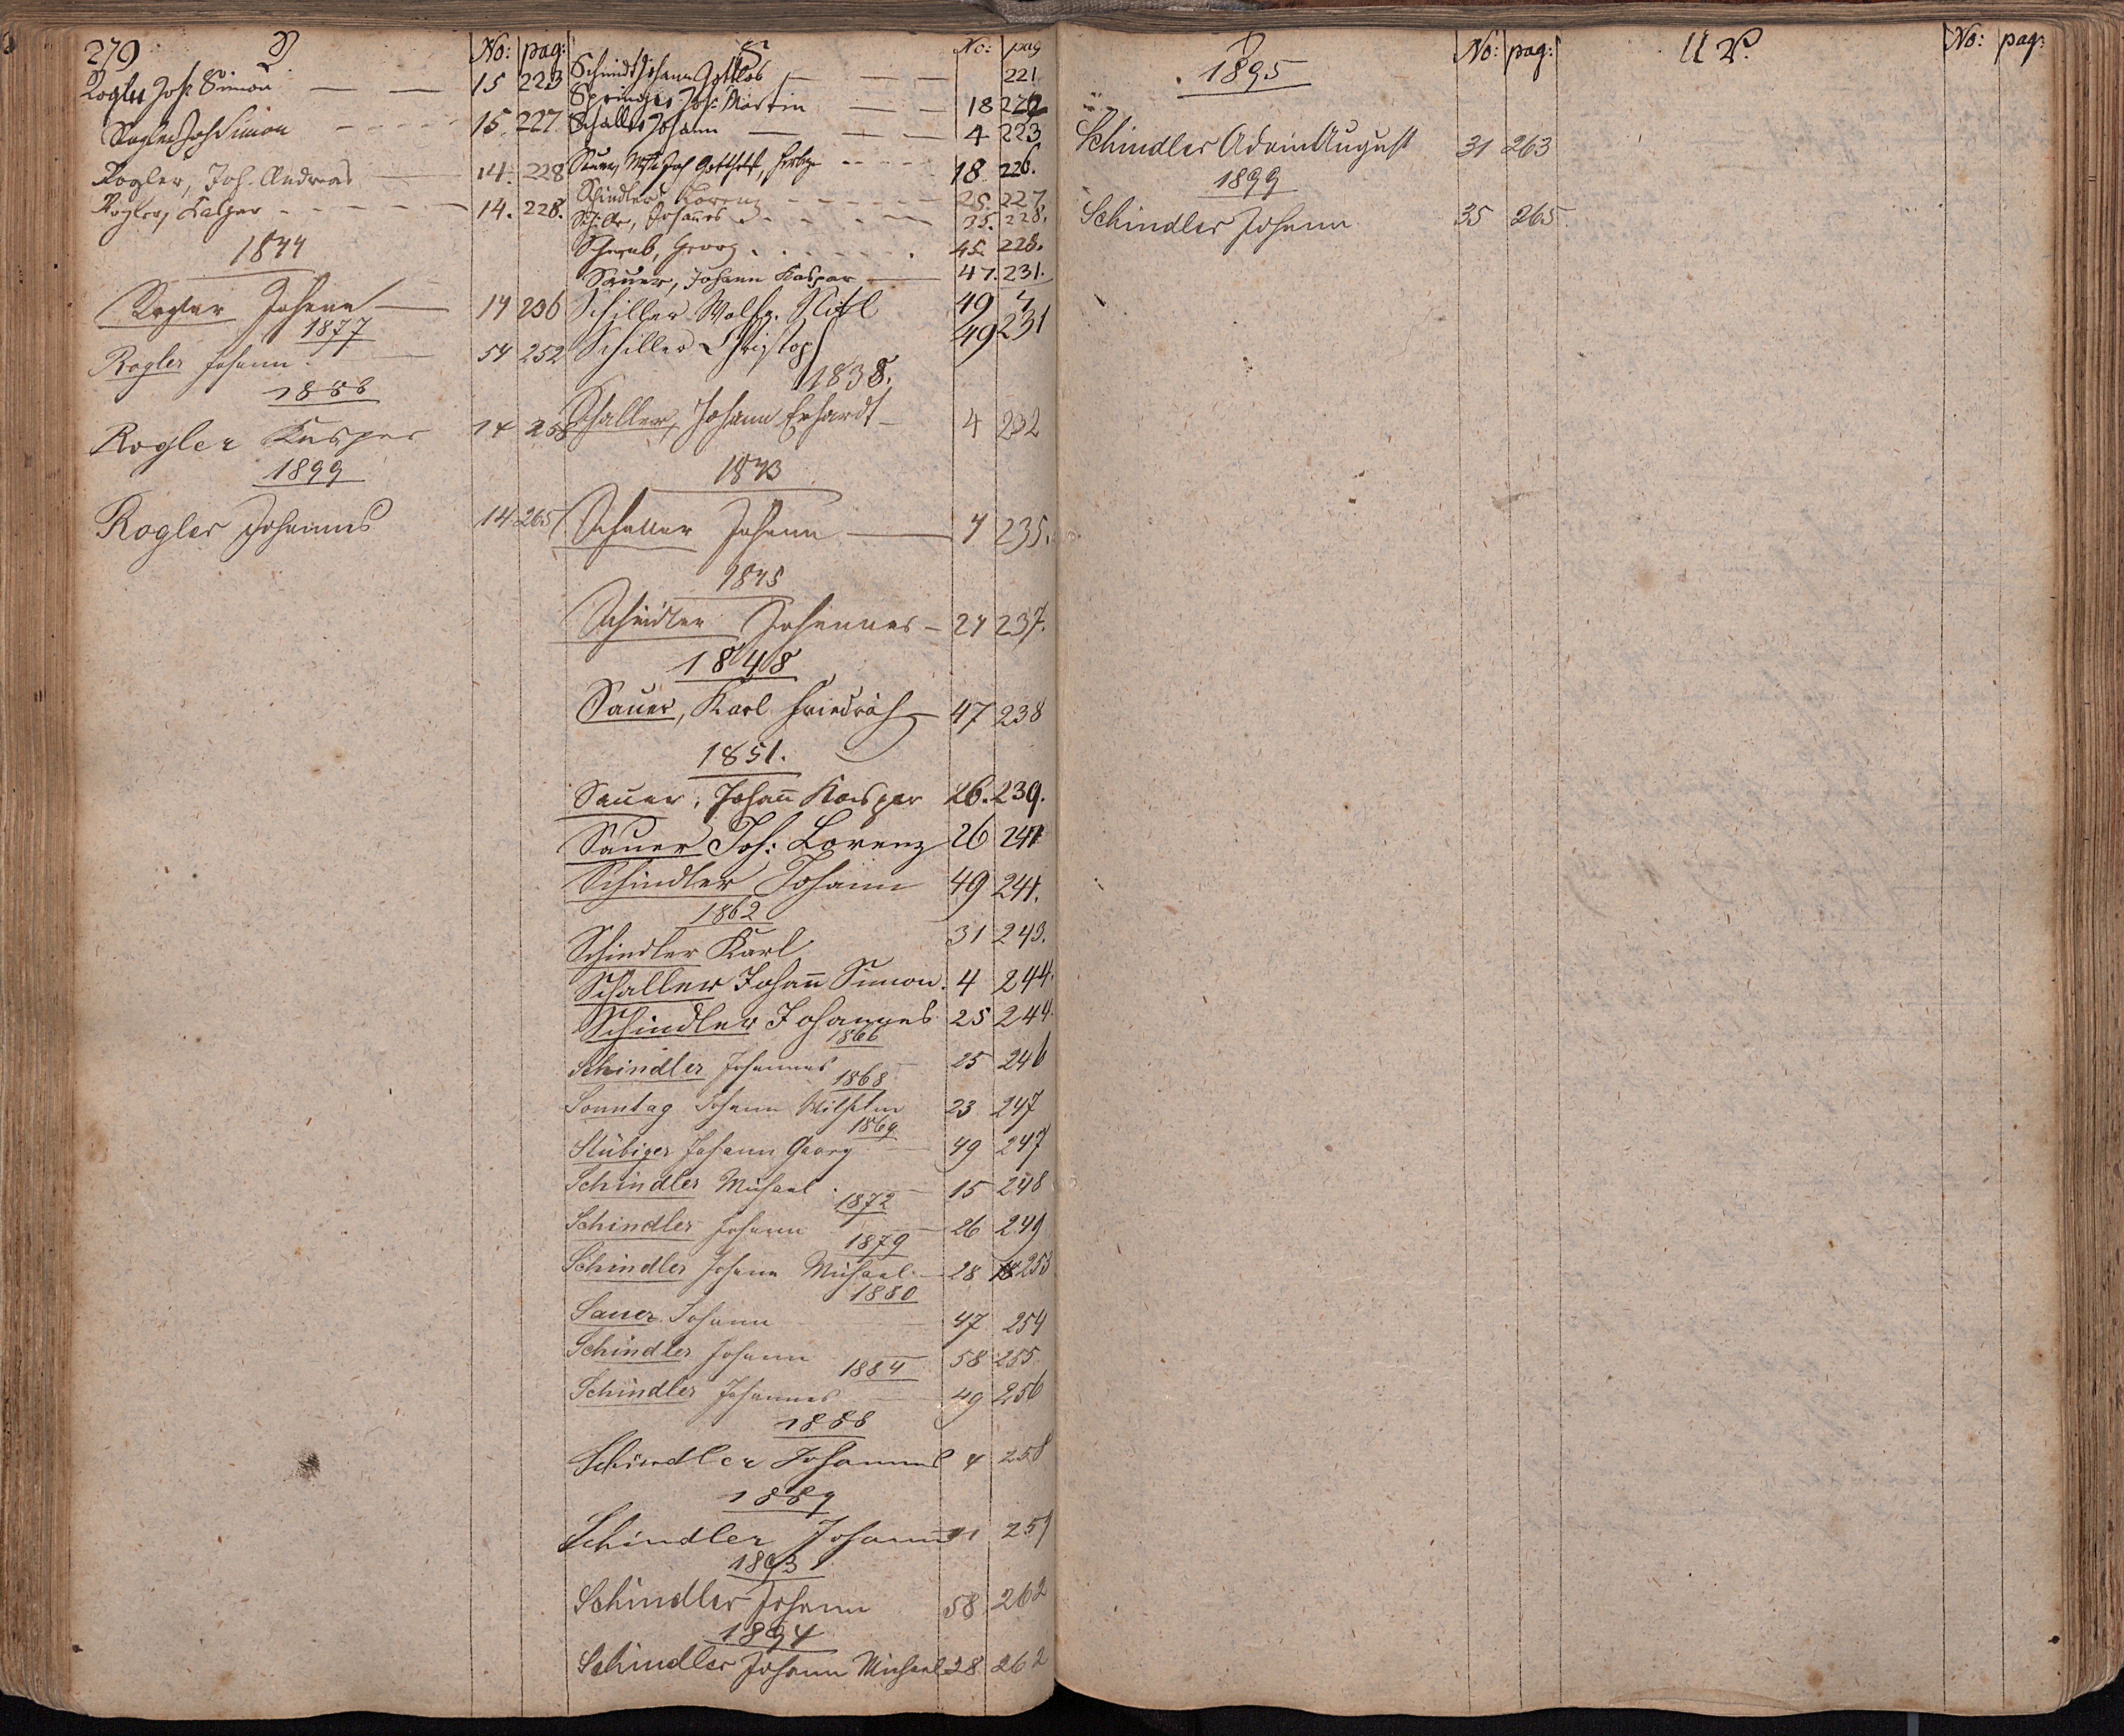 279 R No: pag:
Rogler Joh: Simon — — 15 223
Rogler Joh Simon - - - - 15. 227
Rogler, Joh. Andreas — 14. 228
Rogler, Kaspar - - - - - 14. 228.
1844
Rogler Johann — 14 236
1877
Rogler Johann — 54 252
1888
Rogler Kaspar 14 258
1899
Rogler Johannes 14 265
S No: pag
Schmidt Johann Gottlob — — — 221
Springer Joh: Martin — — 18
Schaller Johann — — — 4 223
Sauer, Joh Gotthelf, - - - - 18 226.
Schindler Lorenz - - - - - - 25. 227.
Johannes - - - - - - 35. 228.
Georg - - - - - - 45. 228.
Sauer, Johann Kaspar — 47. 231.
Schiller Wolfg. Nikl 49 "
Schiller Christoph 49 231
1838.
Schaller, Johann Erhardt — 4 232
1843
Schaller Johann — 4 235.
1845
Schindler Johannes — 24 237.
1848
Sauer, Karl Friedrich — 47 238
1851.
Sauer, Johan̄ Kaspar 26. 239.
Sauer Joh: Lorenz 26 241
Schindler Johann 49 241.
1862
Schindler Karl 31 243.
Schaller Johan̄ Simon. 4 244.
Schindler Johannes 25 244.
1866
Schindler Johannes — 25 246
1868
Sonntag Johann Wilhelm 23 247
1869
Stübiger Johann Georg — 49 247
Schindler Michael — 15 248
1872
Schindler Johann — 26 249
1879
Schindler Johann Michael — 28 253
1880
Sauer Johann — 47 254
Schindler Johann — 58 255
1884
Schindler Johannes — 49 256
1888
Schindler Johannes 4 258
1889
Schindler Johann 31 259
1893
Schindler Johann 58 262
1894
Schindler Johann Michael 28 262
No: pag:
1895
Schindler Adam August 31 263
1899
Schindler Johann 35 265
U V. No: pag: